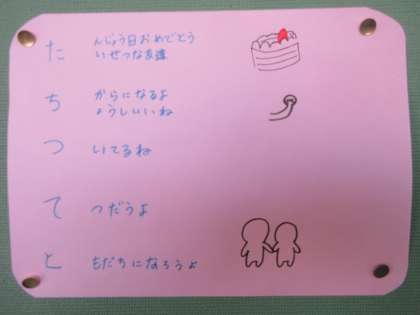 た んじょう日おめでとう
いせつな友達
ち からになるよ
ょうしいいね
つ いてるね
て つだうよ
と もだちになろうよ